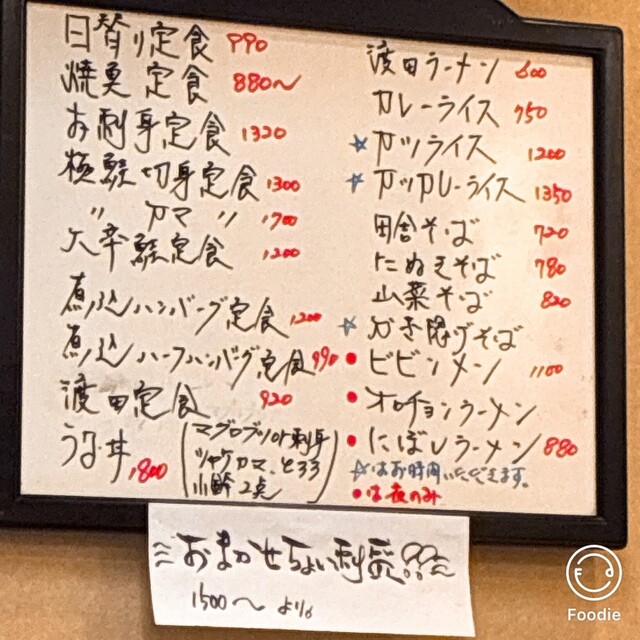 日替り定食 990
焼魚定食 880～
お刺身定食 1320
極鮭切身定食 1300
〃 カマ 〃 1700
大辛鮭定食 1200
煮込ハンバーグ定食 1200
煮込ハーフハンバーグ定食 990
渡田定食 920
うな丼 1,800
(マグロブリorト刺身
シャケカマ、とろろ
小鉢2点)
渡田ラーメン 600
カレーライス 750
☆カツライス 1200
☆カツカレーライス 1350
田舎そば 720
たぬきそば 780
山菜そば 820
☆かき揚げそば
●ビビンメン 1100
●オロチョンラーメン
●にぼしラーメン 880
☆はお時間いただきます。
●は夜のみ
おまかせちょい刺し
1500～より
Foodie